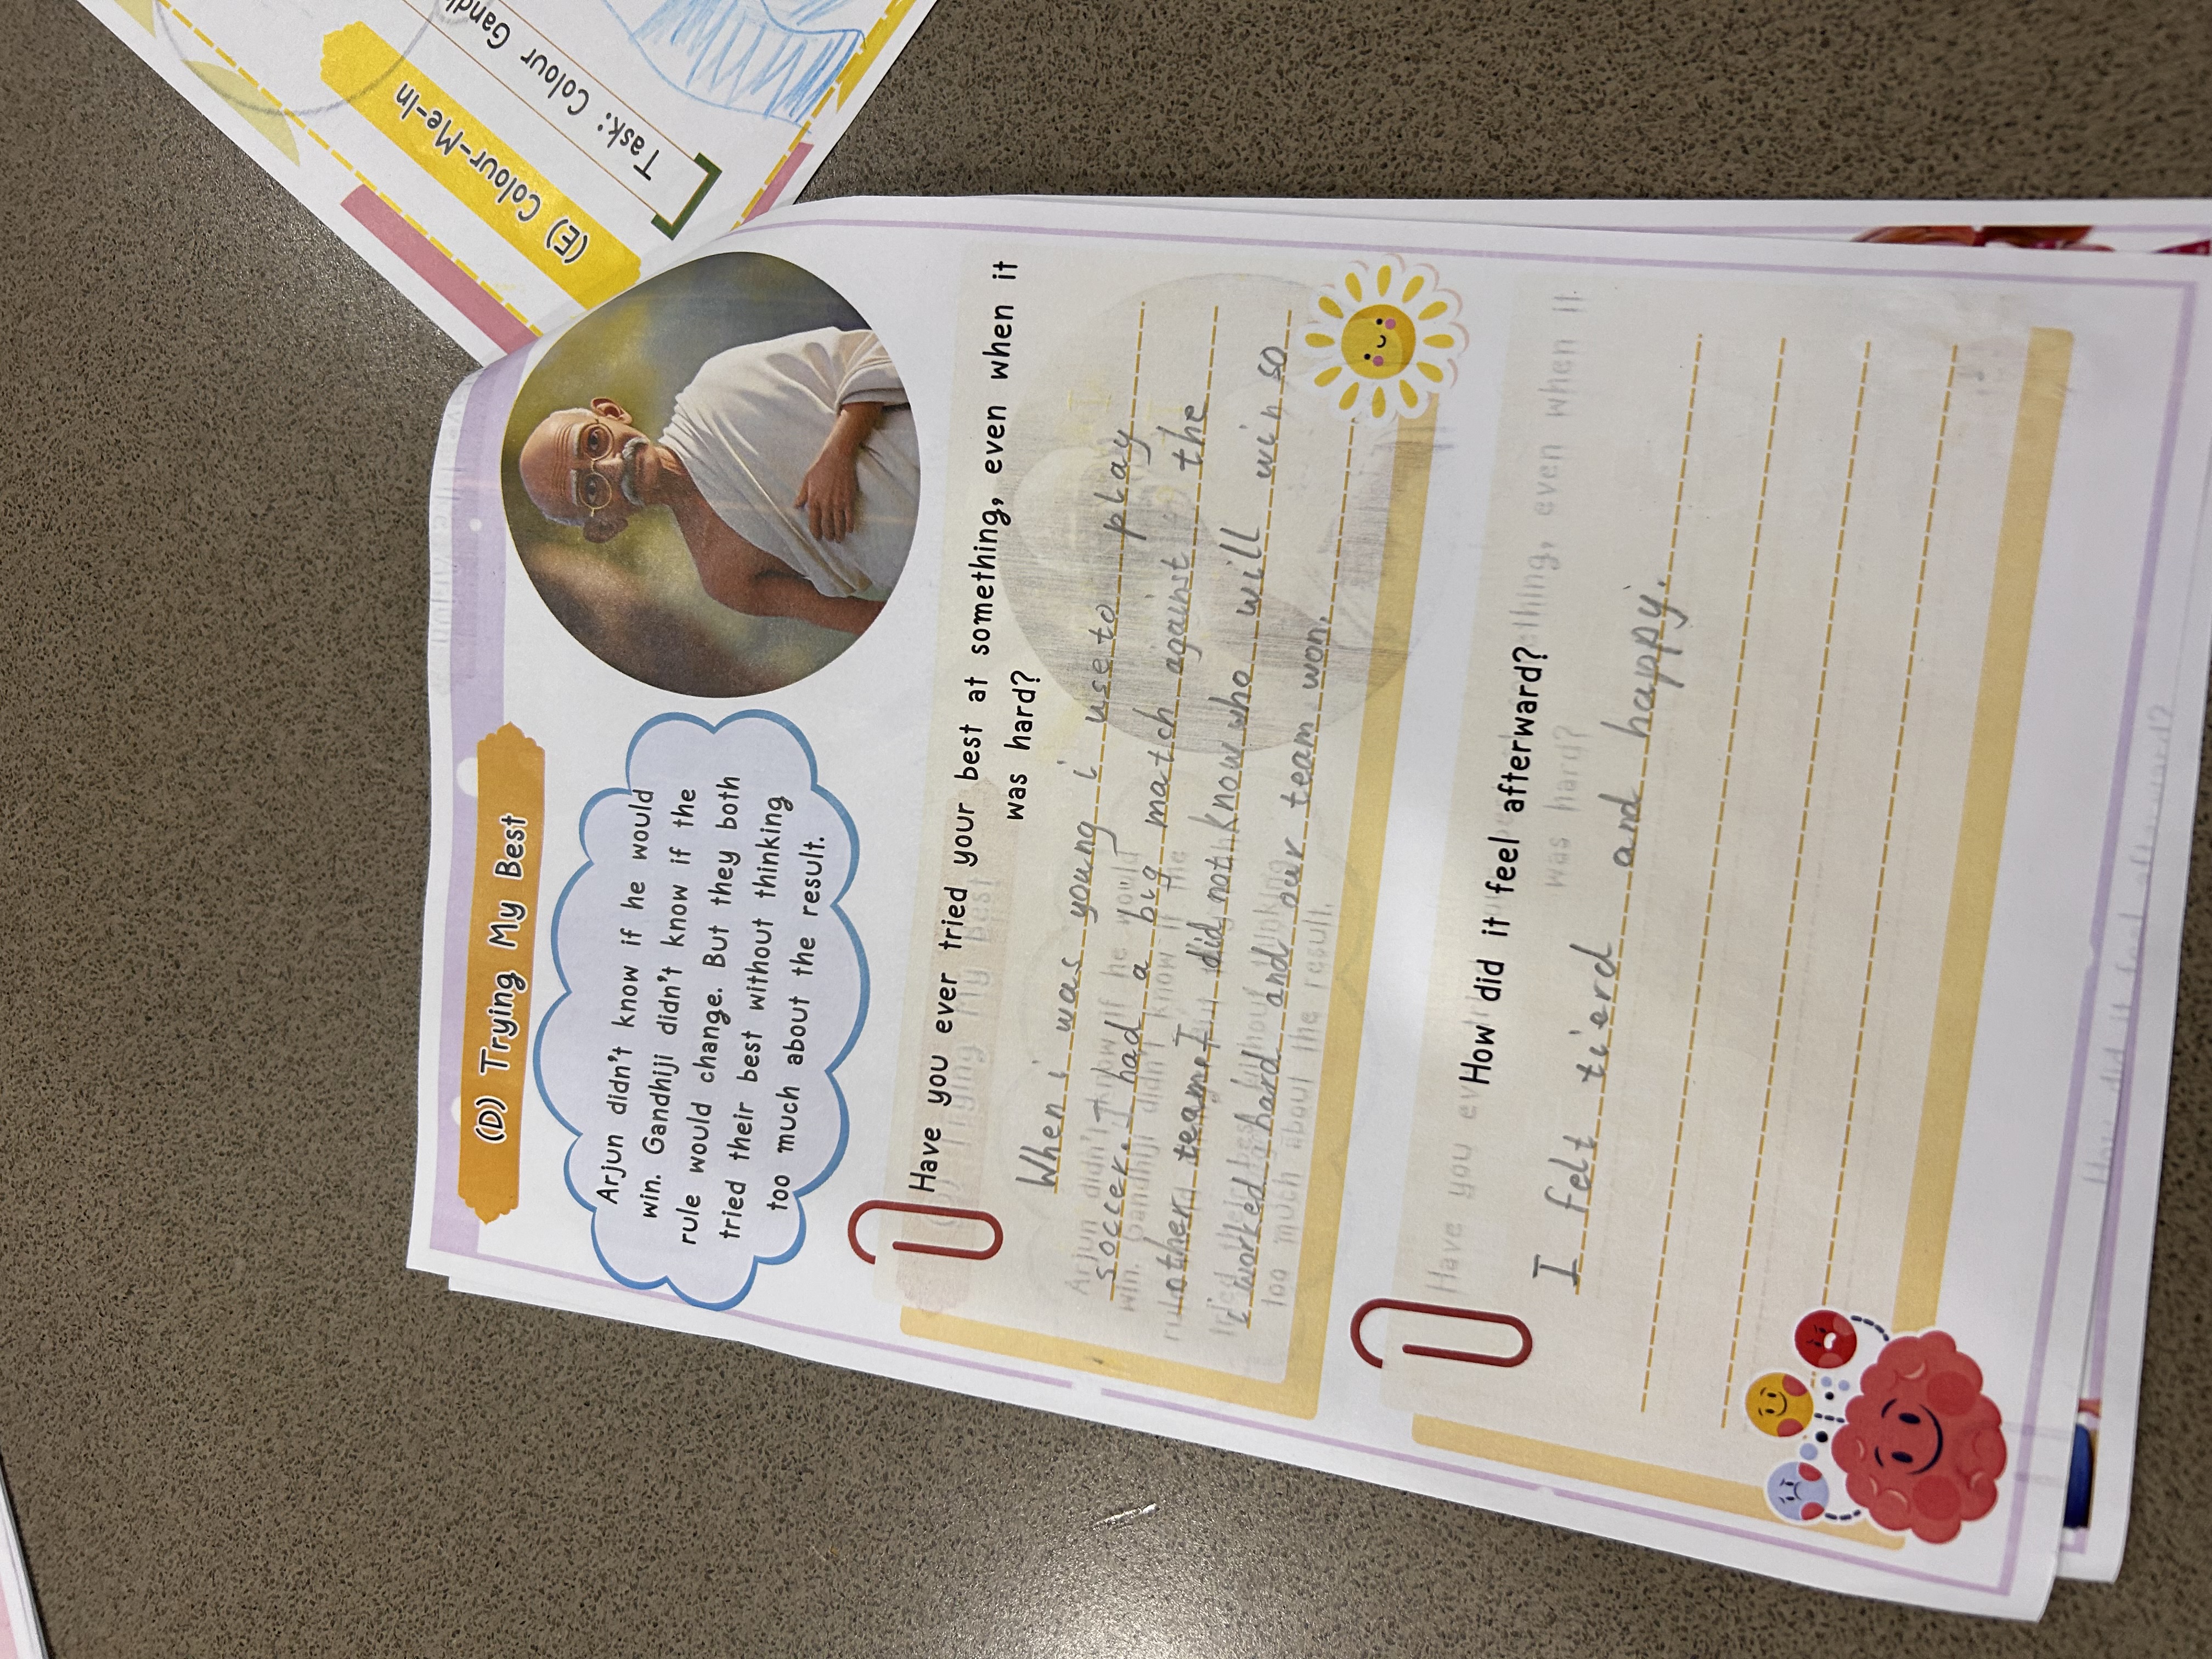 (D) Trying My Best
Arjun didn't know if he would
win. Gandhiji didn't know if the
rule would change. But they both
tried their best without thinking
too much about the result.
Have you ever tried your best at something, even when it
was hard?
When i was young i use to play
soccer. I had a big match against the
other team I did not know who will win so
i worked hard and our team won.
How did it feel afterward?
I felt tierd and happy.
(E) Colour-Me-In
Task: Colour